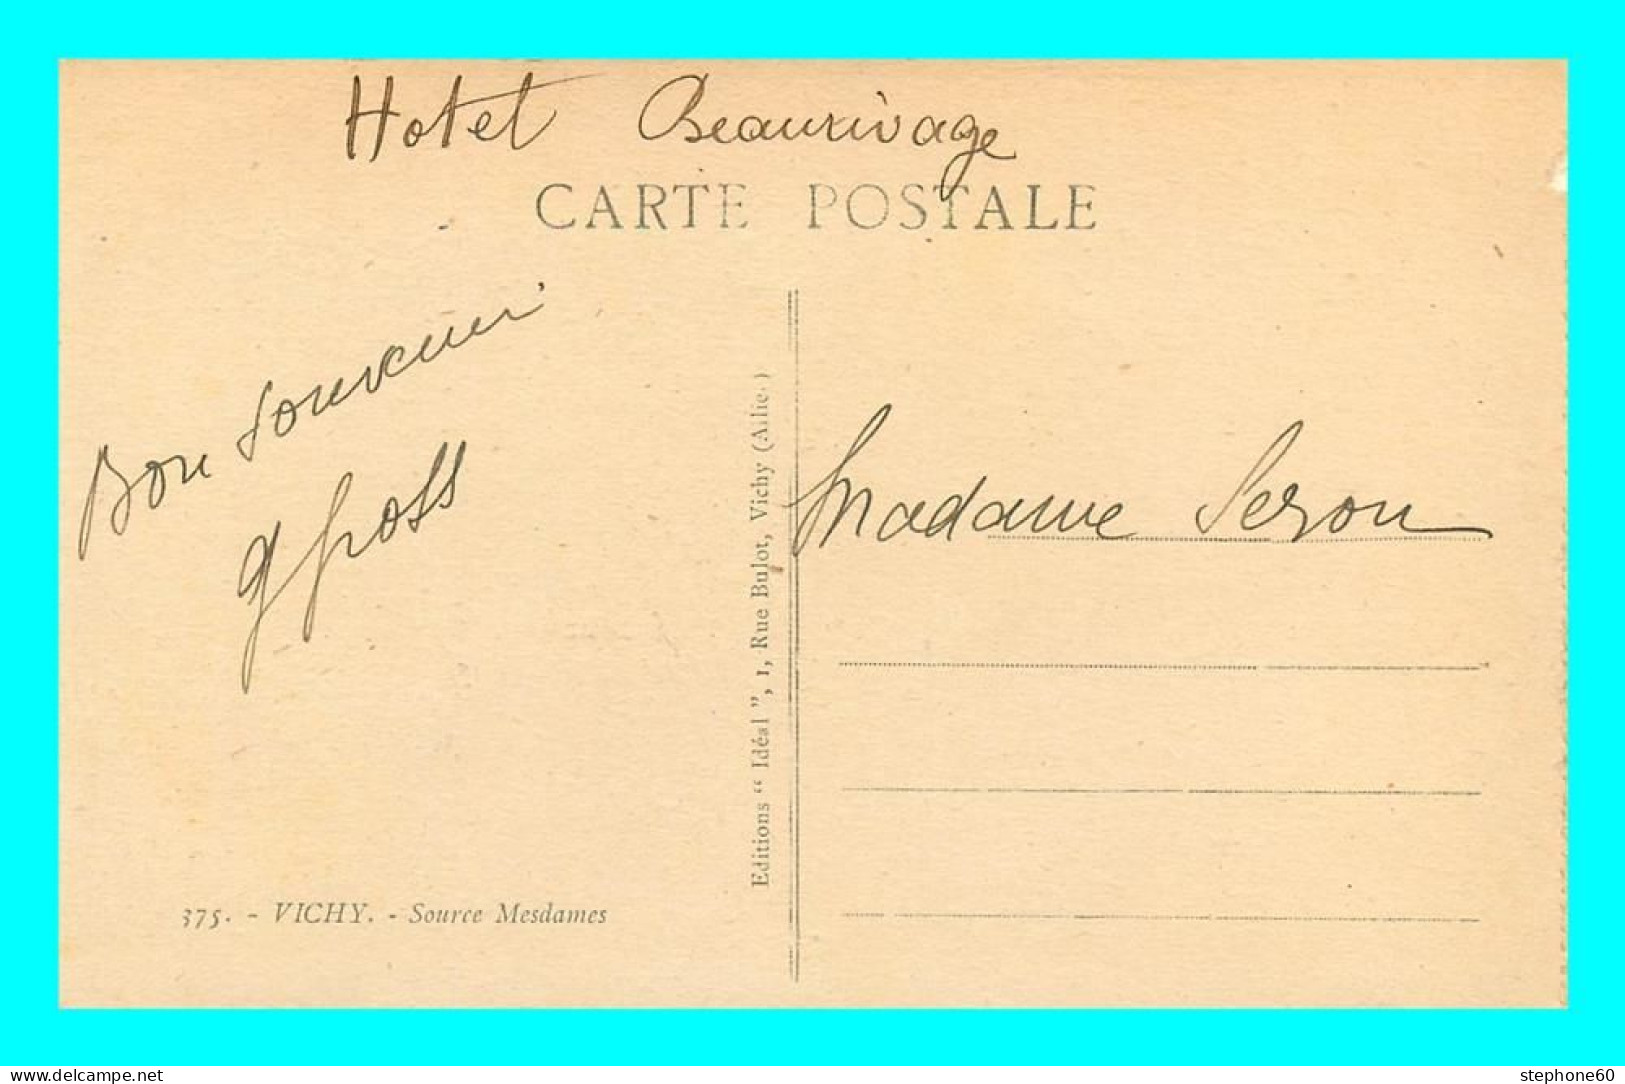 Hotel Beaurivage
CARTE POSTALE
Bon souvenir
Madame
Editions “ Idéal ”, 1, Rue Bulot, Vichy (Allie.)
375. - VICHY. - Source Mesdames
www.delcampe.net
stephone60